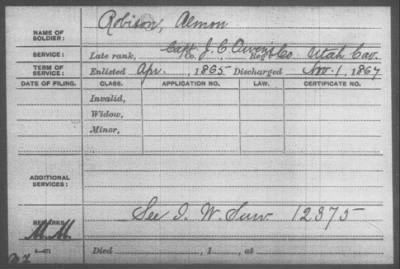 NAME OF SOLDIER: Robison, Almon
SERVICE: Late rank, Capt. J. C. Owens Co. Reg't Utah Cav.
TERM OF SERVICE: Enlisted Apr. , 1865 Discharged Nov. 1, 1867
DATE OF FILING. CLASS. APPLICATION NO. LAW. CERTIFICATE NO.
Invalid,
Widow,
Minor,
ADDITIONAL SERVICES:
See I. W. Surv 12375
REMARKS:
Died , 1 , at